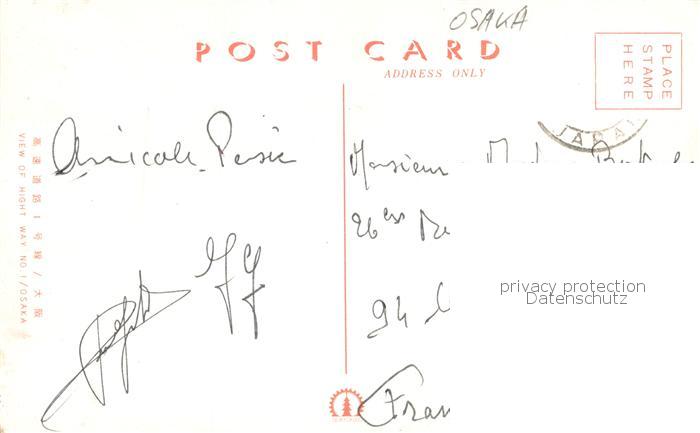 OSAKA
POST CARD
ADDRESS ONLY
PLACE
STAMP
HERE
JAPAN
高速道路1号線/大阪
VIEW OF HIGHT WAY NO.1/OSAKA
Amicale Pensée
Monsieur
26
94
Fran
privacy protection
Datenschutz